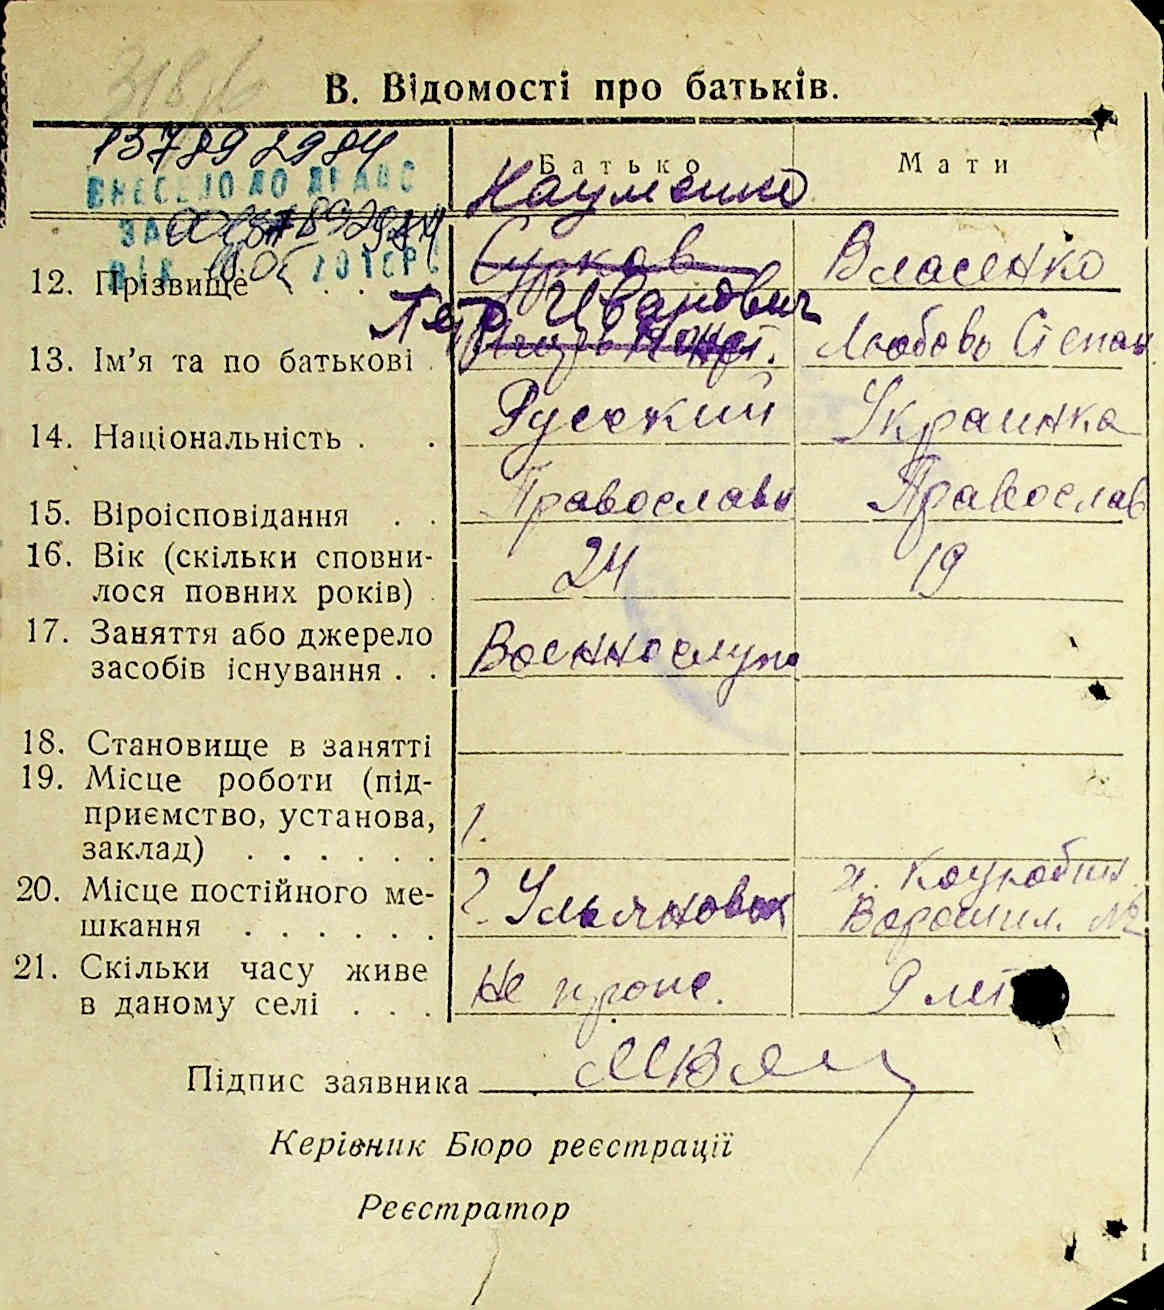 318/6
В. Відомості про батьків.
13789 2984
Батько Мати
ВНЕСЕНО ДО ДРАЦС
Науменко
ЗА
12. Прізвище . . . Сурков Власенко
Петр Иванович
13. Ім’я та по батькові . Любовь Степан
14. Національність . . Русский Украинка
15. Віроісповідання . . Православн Православ
16. Вік (скільки сповни-
лося повних років) . 24 19
17. Заняття або джерело
засобів існування . . Военнослуж
18. Становище в занятті
19. Місце роботи (під-
приємство, установа,
заклад) . . . . . .
20. Місце постійного ме-
шкання . . . . . . г. Ульяновск Ворошил. №
21. Скільки часу живе
в даному селі . . . Не прож. 9 лет
Підпис заявника
Керівник Бюро реєстрації
Реєстратор